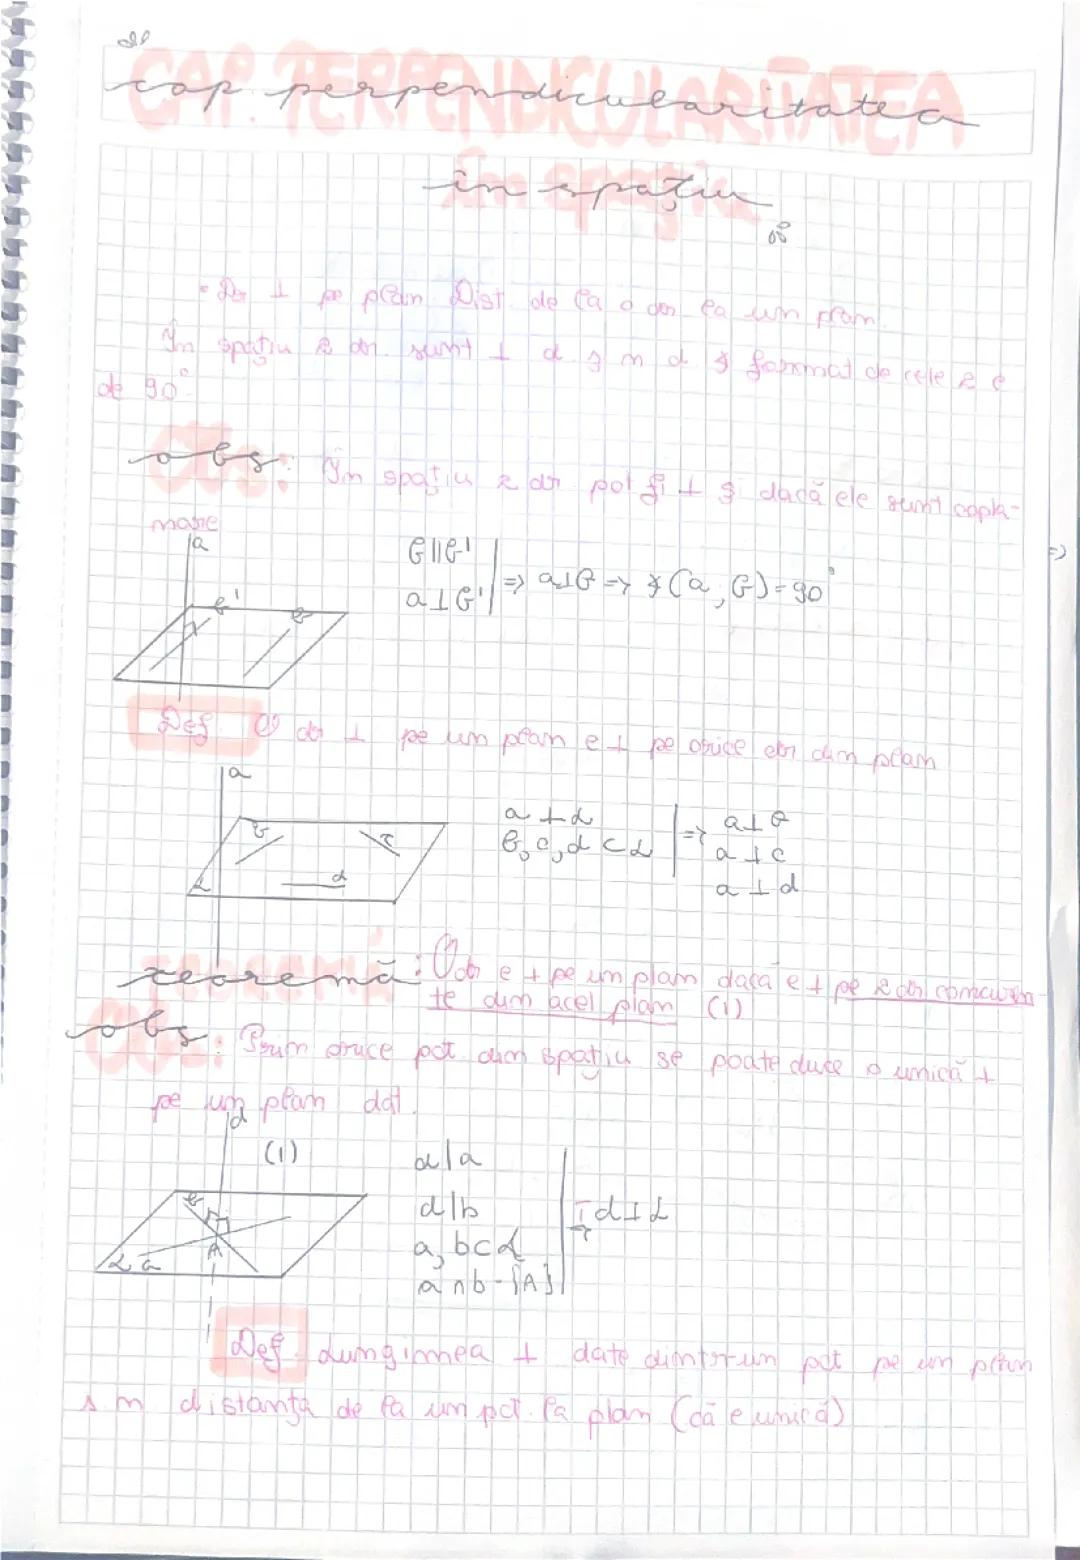 cap. perpendicularitatea
în spațiu
- Dr ⊥ pe plan. Dist. de la o dr la un plan
În spațiu 2 dr. sunt ⊥ d ∢ format de cele 2 e
de 90°
obs: În spațiu 2 dr pot fi ⊥ și dacă ele sunt copla-
nare
a
b||b'
a⊥b' | => a⊥b => ∢(a, b) = 90°
b' b
Def. O dr ⊥ pe un plan e ⊥ pe orice dr din plan
a
a ⊥ α
b, c, d ⊂ α | => a⊥b
a ⊥ c
a ⊥ d
b c
α d
teoremă: O dr e ⊥ pe un plan dacă e ⊥ pe 2 dr concuren-
te din acel plan (1)
obs: Prin orice pct. din spațiu se poate duce o unică ⊥
pe un plan dat.
d
(1)
d⊥a
d⊥b
a, b⊂α
a ∩ b = {A} | => d⊥α
b
A
α a
Def. Lungimea ⊥ date dintr-un pct pe un plan
s n distanța de la un pct. la plan (că e unică)